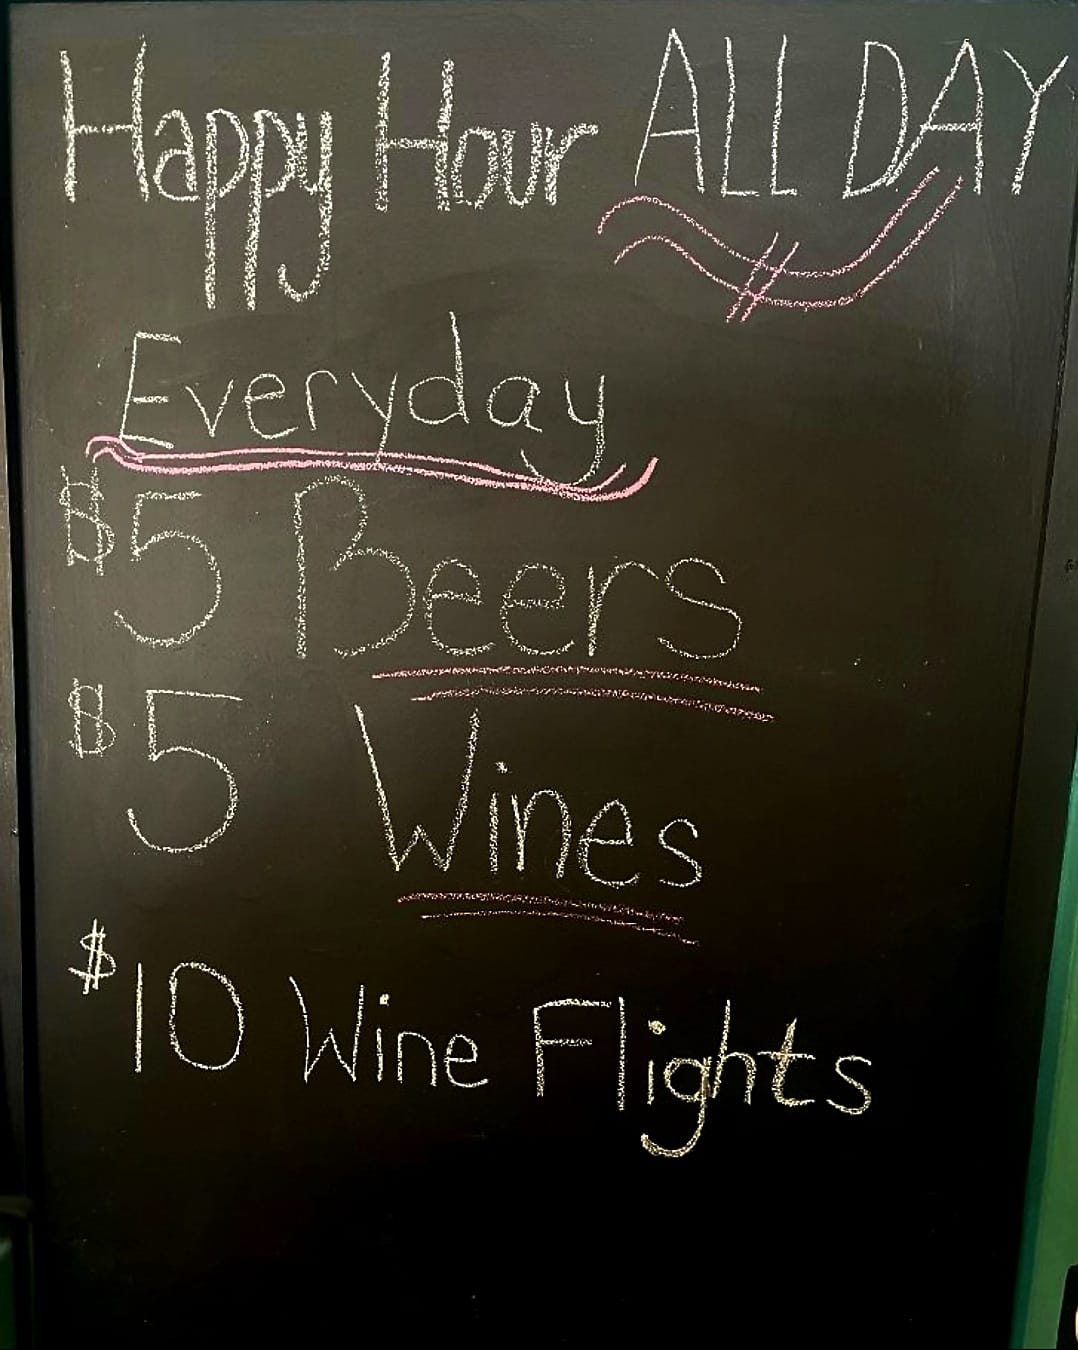 Happy Hour ALL DAY
Everyday
$5 Beers
$5 Wines
$10 Wine Flights